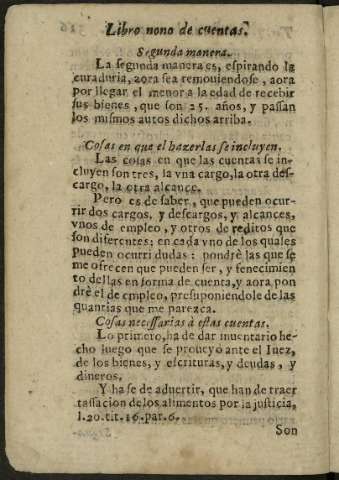 Libro nono de cuentas.
Segunda manera.
La segunda manera es, espirando la
curaduria, aora sea remouiendose, aora
por llegar el menor a la edad de recebir
sus bienes, que son 25. años, y passan
los mismos autos dichos arriba.
Cosas en que el hazerlas se incluyen.
Las cosas en que las cuentas se in-
cluyen son tres, la vna cargo, la otra des-
cargo, la otra alcance.
Pero es de saber, que pueden ocur-
rir dos cargos, y descargos, y alcances,
vnos de empleo, y otros de reditos que
son diferentes: en cada vno de los quales
pueden ocurri dudas: pondrè las que se
me ofrecen que pueden ser, y fenecimien
to dellas en forma de cuenta, y aora pon
drè el de empleo, presuponiendole de las
quantias que me parezca.
Cosas necessarias à estas cuentas.
Lo primero, ha de dar inuentario he-
cho luego que se proueyò ante el Iuez,
de los bienes, y escrituras, y deudas, y
dineros.
Y ha se de aduertir, que han de traer
tassacion de los alimentos por la justicia,
l.20.tit.16.par.6.
Son